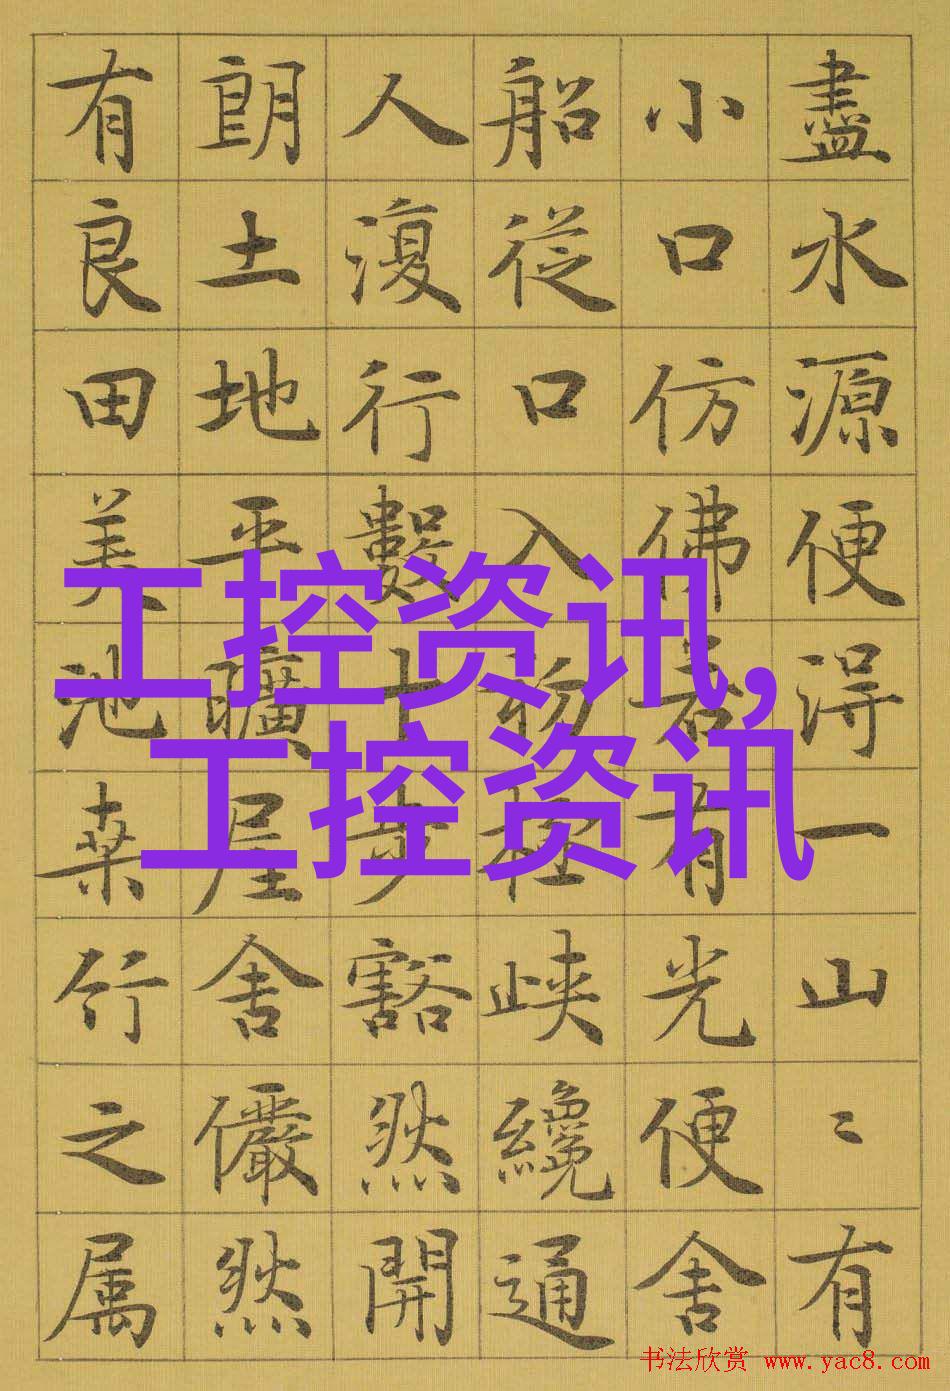 盡水源便得一山〻有
小口仿佛若有光便舍
船從口入初極峽纔通
人復行數十步豁然開
朗土地平曠屋舍儼然
有良田美池桑竹之属
工控资讯,
工控资讯
书法欣赏 www.yac8.com